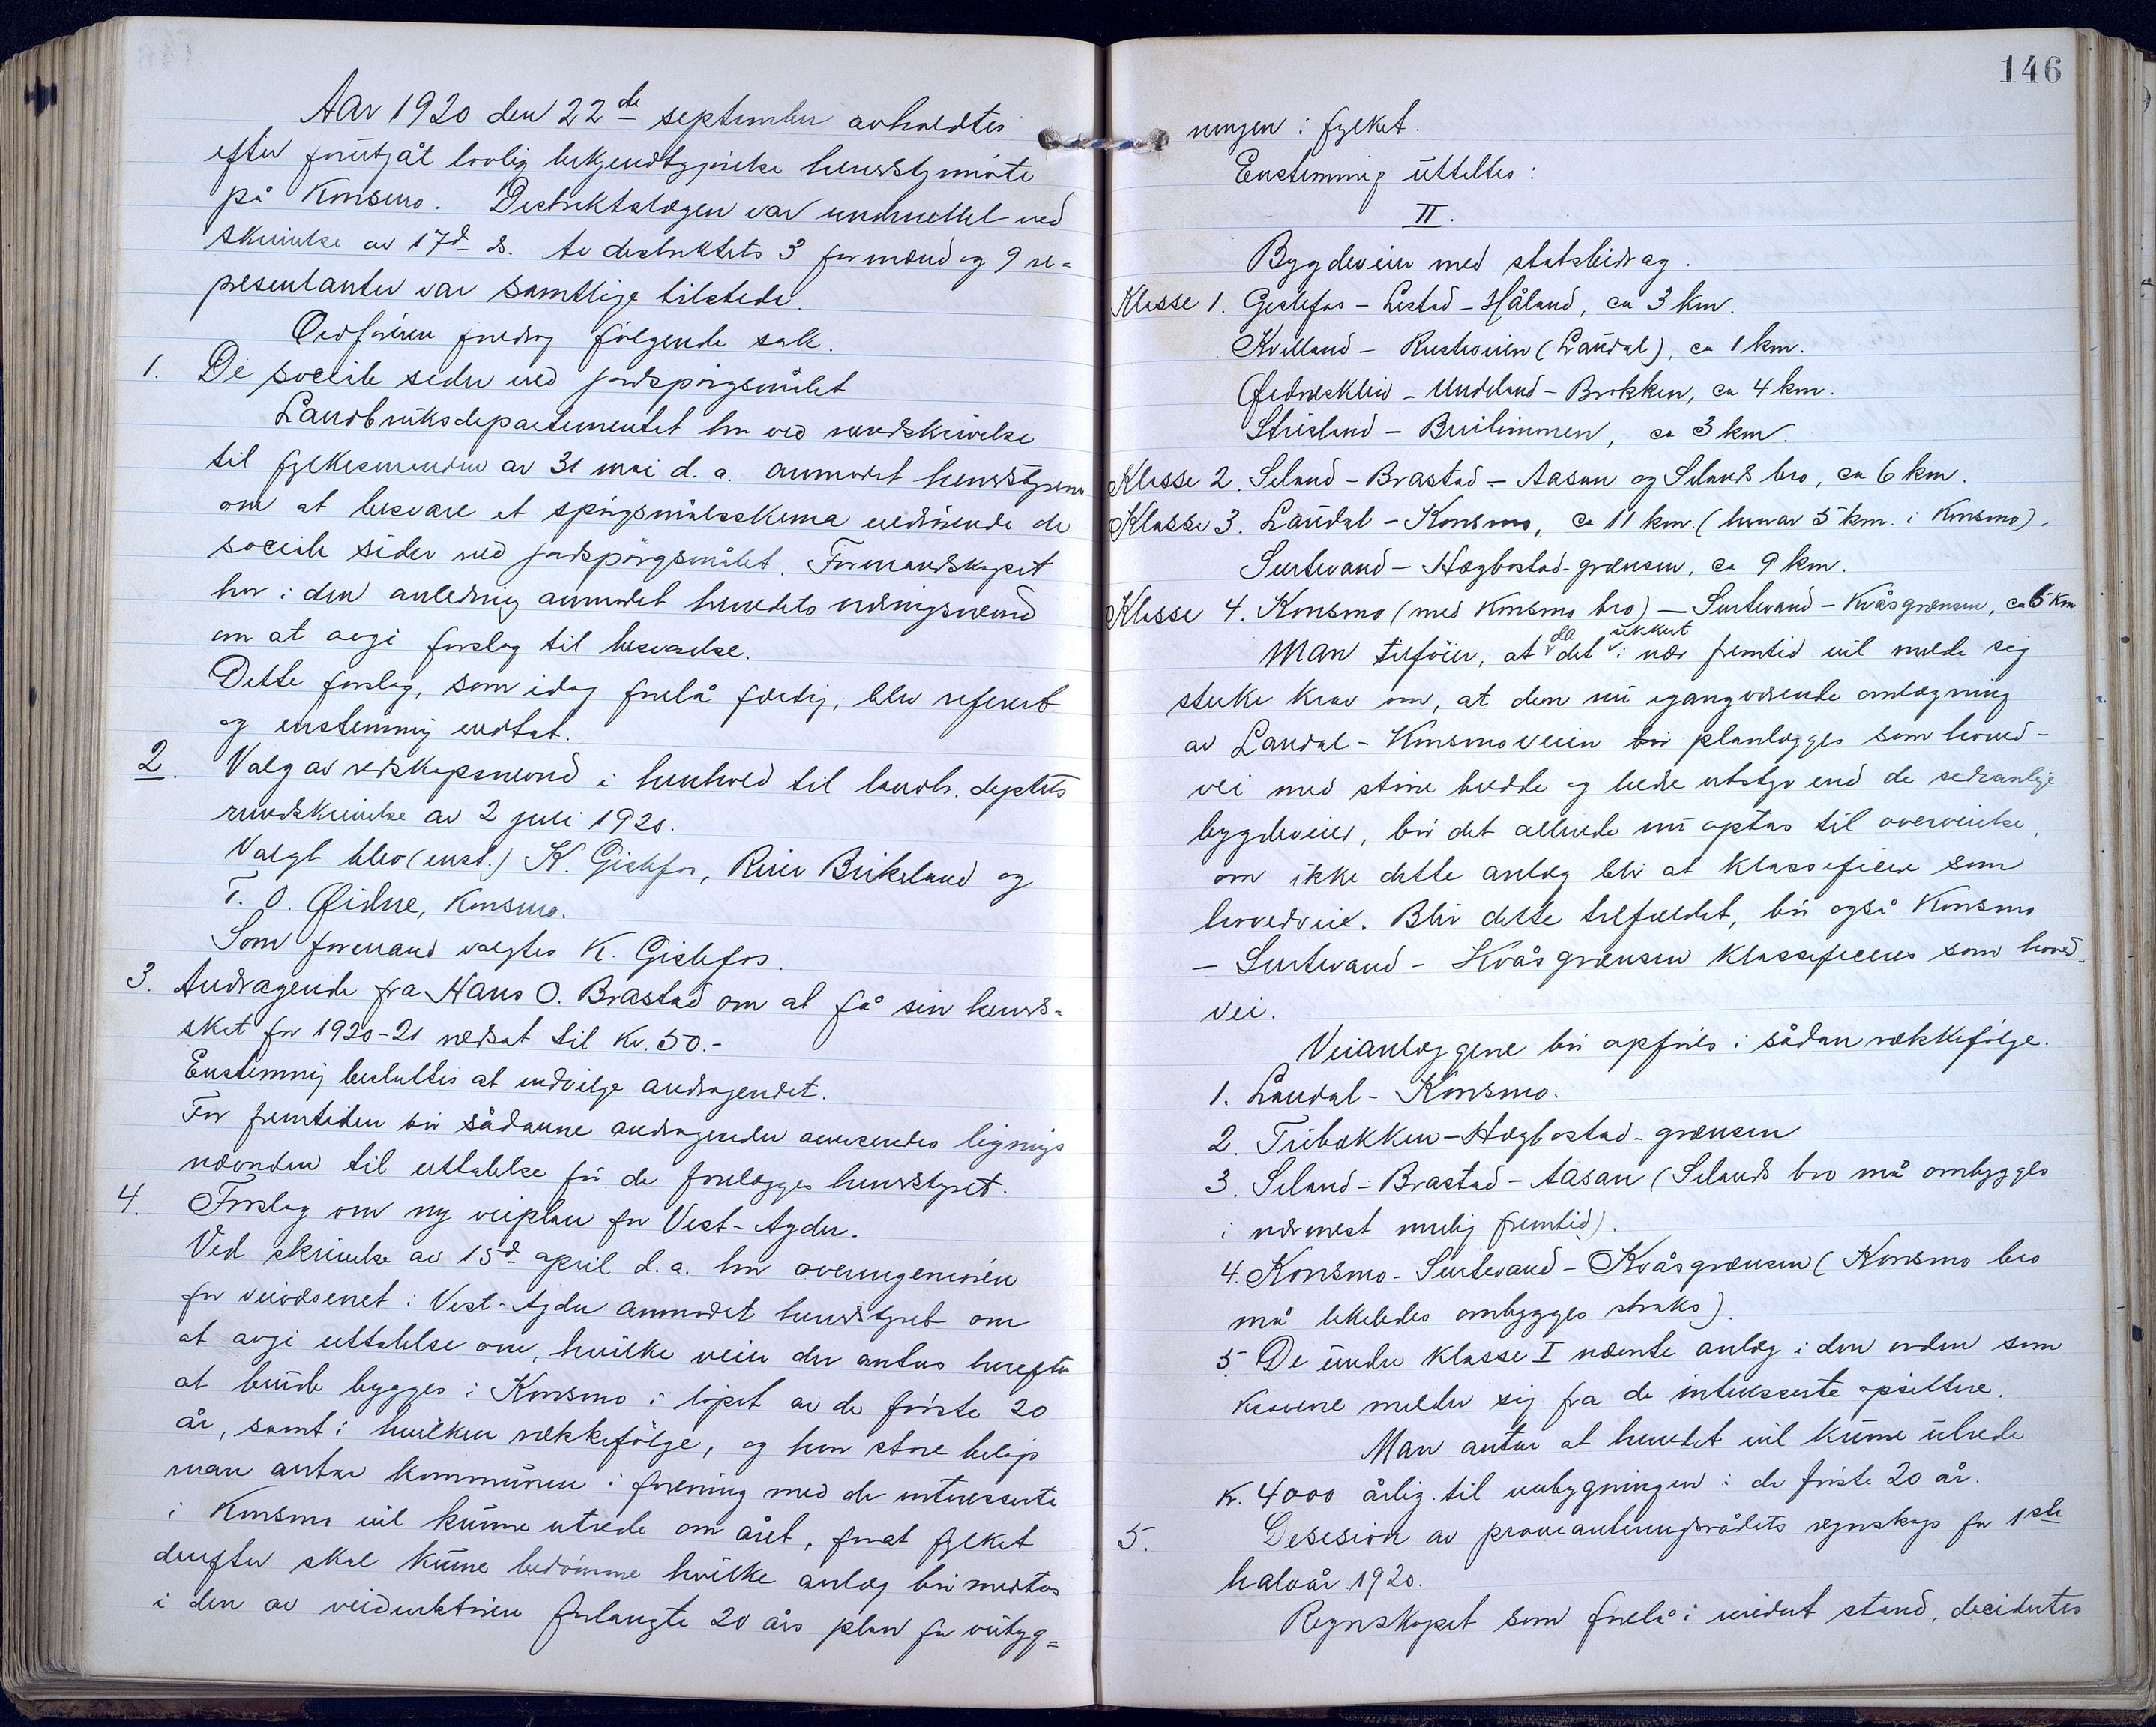 Aar 1920 den 22de september avholdtes
efter forutgåt lovlig bekjendtgjørelse herredsstyremøte
på Konsmo. Distriktslægen var underrettet ved
skrivelse av 17d ds. Av distriktets 3 formænd og 9 re=
presentanter var samtlige tilstede.
Ordføreren foredrog følgende sak.
1. De sociale sider ved jordspørgsmålet
Landbruksdepartementet har ved rundskrivelse
til fylkesmanden av 31 mai d. a. anmodet herredsstyrene
om at besvare et spørgsmålsskema vedrørende de
sociale sider ved jordspørgsmålet. Formandskapet
har i den anledning anmodet herredets nævnd
om at avgi forslag til besvarelse.
Dette forslag, som idag forelå færdig, blev referert
og enstemmig vedtat.
2. Valg av redskapsnevnd i henhold til landb. deptets
rundskrivelse av 2 juli 1920.
Valgt blev (enst.) K. Gislefos, Reier Birkeland og
T. O. Øidne, Konsmo.
Som formand valgtes K. Gislefos.
3. Andragende fra Hans O. Brastad om at få sin herreds-
skat for 1920-21 nedsat til Kr. 50.-
Enstemmig besluttes at indvilge andragendet.
For fremtiden bør sådanne andragender lignings
nævnden til uttalelse før de forelægges herredsstyret.
4. Forslag om ny veiplan for Vest-Agder.
Ved skrivelse av 15d april d. a. har overingeniøren
for veivæsenet i Vest-Agder anmodet herredsstyret om
at avgi uttalelse om, hvilke veier der antas herefter
at burde bygges i Konsmo i løpet av de første 20
år, samt i hvilken rækkefølge, og hvor store beløp
man antar kommunen i forening med de interesserte
i Konsmo vil kunne utrede om året, forat fylket
derefter skal kunne bedømme hvilke anlæg bør medtas
i den av veidirektøren forlangte 20 års plan for veibyg=
146
ningen i fylket.
Enstemmig uttaltes:
II.
Bygdeveier med statsbidrag.
Klasse 1. Gislefos - Lestad - Håland, ca 3 km.
Kvelland - (Laudal), ca 1 km.
- Undeland - Brokken, ca 4 km.
Strisland - , ca 3 km.
Klasse 2. Seland - Brastad - Aasan og Selands bro, ca 6 km.
Klasse 3. Laudal - Konsmo, ca 11 km. (hvorav 5 km. i Konsmo).
Surtevand - Hægbostad-grænsen, ca 9 km.
Klasse 4. Konsmo (med Konsmo bro) - Surtevand - Kvåsgrænsen, ca 6 km.
Man tilføier, at da det sikkert i nær fremtid vil melde sig
sterke krav om, at den nu igangværende omlægning
av Laudal - Konsmoveien bør planlægges som hoved-
vei med større bredde og bedre utstyr end de sedvanlige
bygdeveier, bør det allerede nu optas til overveielse,
om ikke dette anlæg blir at klassificere som
hovedvei. Blir dette tilfældet, bør også Konsmo
- Surtevand - Kvåsgrænsen klassificeres som hoved-
vei.
Veianlæggene bør opføres i sådan rækkefølge.
1. Laudal - Konsmo.
2. Tribækken - Hægbostad-grænsen
3. Seland - Brastad - Aasan (Selands bro må ombygges
i nærmest mulig fremtid).
4. Konsmo - Surtevand - Kvåsgrænsen (Konsmo bro
må likeledes ombygges straks).
5. De under klasse I nævnte anlæg i den orden som
kravene melder sig fra de interesserte opsittere.
Man antar at herredet vil kunne utrede
kr. 4000 årlig til veibygningen i de første 20 år.
5. Desision av provianteringsrådets regnskap for 1ste
halvår 1920.
Regnskapet som forelå i revidert stand, decidertes